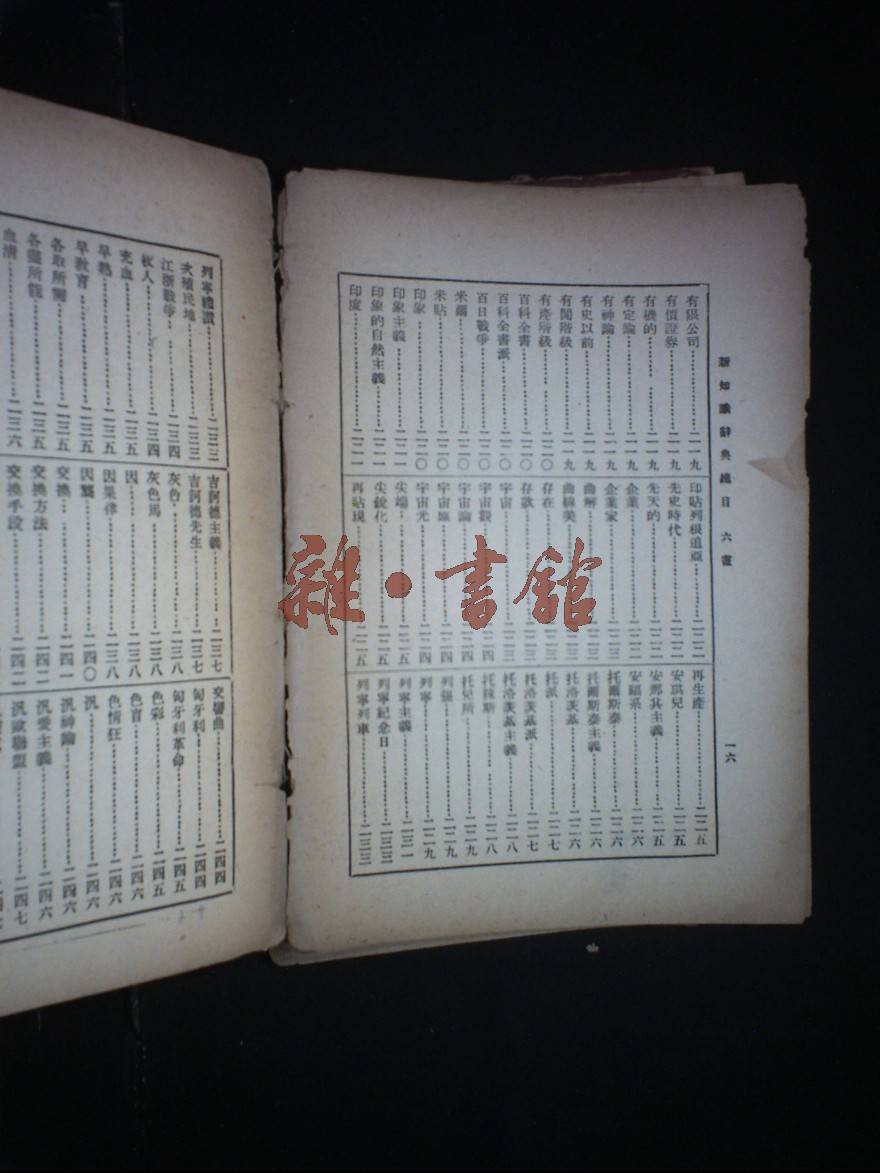 新知識辭典總目 六畫
一六
有限公司 二一九
有價證券 二一九
有機的 二一九
有定論 二一九
有神論 二一九
有史以前 二一九
有閒階級 二一九
有產階級 二二〇
百科全書 二二〇
百科全書派 二二〇
百日戰爭 二二〇
米爾 二二〇
米貼 二二〇
印象 二二〇
印象主義 二二一
印象的自然主義 二二一
印度 二二一
印貼列根追亞 二二二
先史時代 二二二
先天的 二二二
企業 二二二
企業家 二二二
曲解
曲線美
存在
存款
宇宙 二二三
宇宙觀 二二四
宇宙論 二二四
宇宙
宇宙光 二二四
尖端 二二五
尖銳化 二二五
再貼現 二二五
再生產 二二五
安琪兒 二二五
安那其主義 二二五
安福系 二二六
托爾斯泰 二二六
托爾斯泰主義 二二六
托洛茨基 二二六
托洛茨基派 二二七
托派 二二七
托洛茨基主義 二二八
托辣斯 二二八
托兒所 二二九
列強 二二九
列寧 二二九
列寧主義 二三一
列寧紀念日
列寧列車
列寧禮讚 二三三
次殖民地 二三三
江浙戰爭 二三四
收人 二三四
充血 二三五
早熟 二三五
早教育 二三五
各取所需 二三五
各盡所能 二三五
血清 二三六
吉訶德主義 二三七
吉訶德先生 二三七
灰色 二三八
灰色馬 二三八
因 二三八
因果律 二三八
因襲 二四〇
交換 二四一
交換方法 二四二
交換手段 二四二
交響曲 二四四
匈牙利 二四四
匈牙利革命 二四五
色彩 二四五
色盲 二四六
色情狂 二四六
汎 二四六
汎神論 二四六
汎愛主義 二四六
汎歐聯盟 二四七
雜·書館